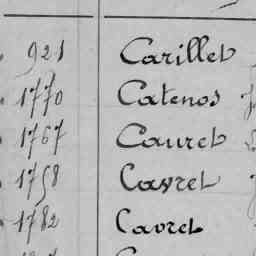 921 Carillet
1770 Catenos
1767 Cauret
1768 Cavret
1782 Cavret